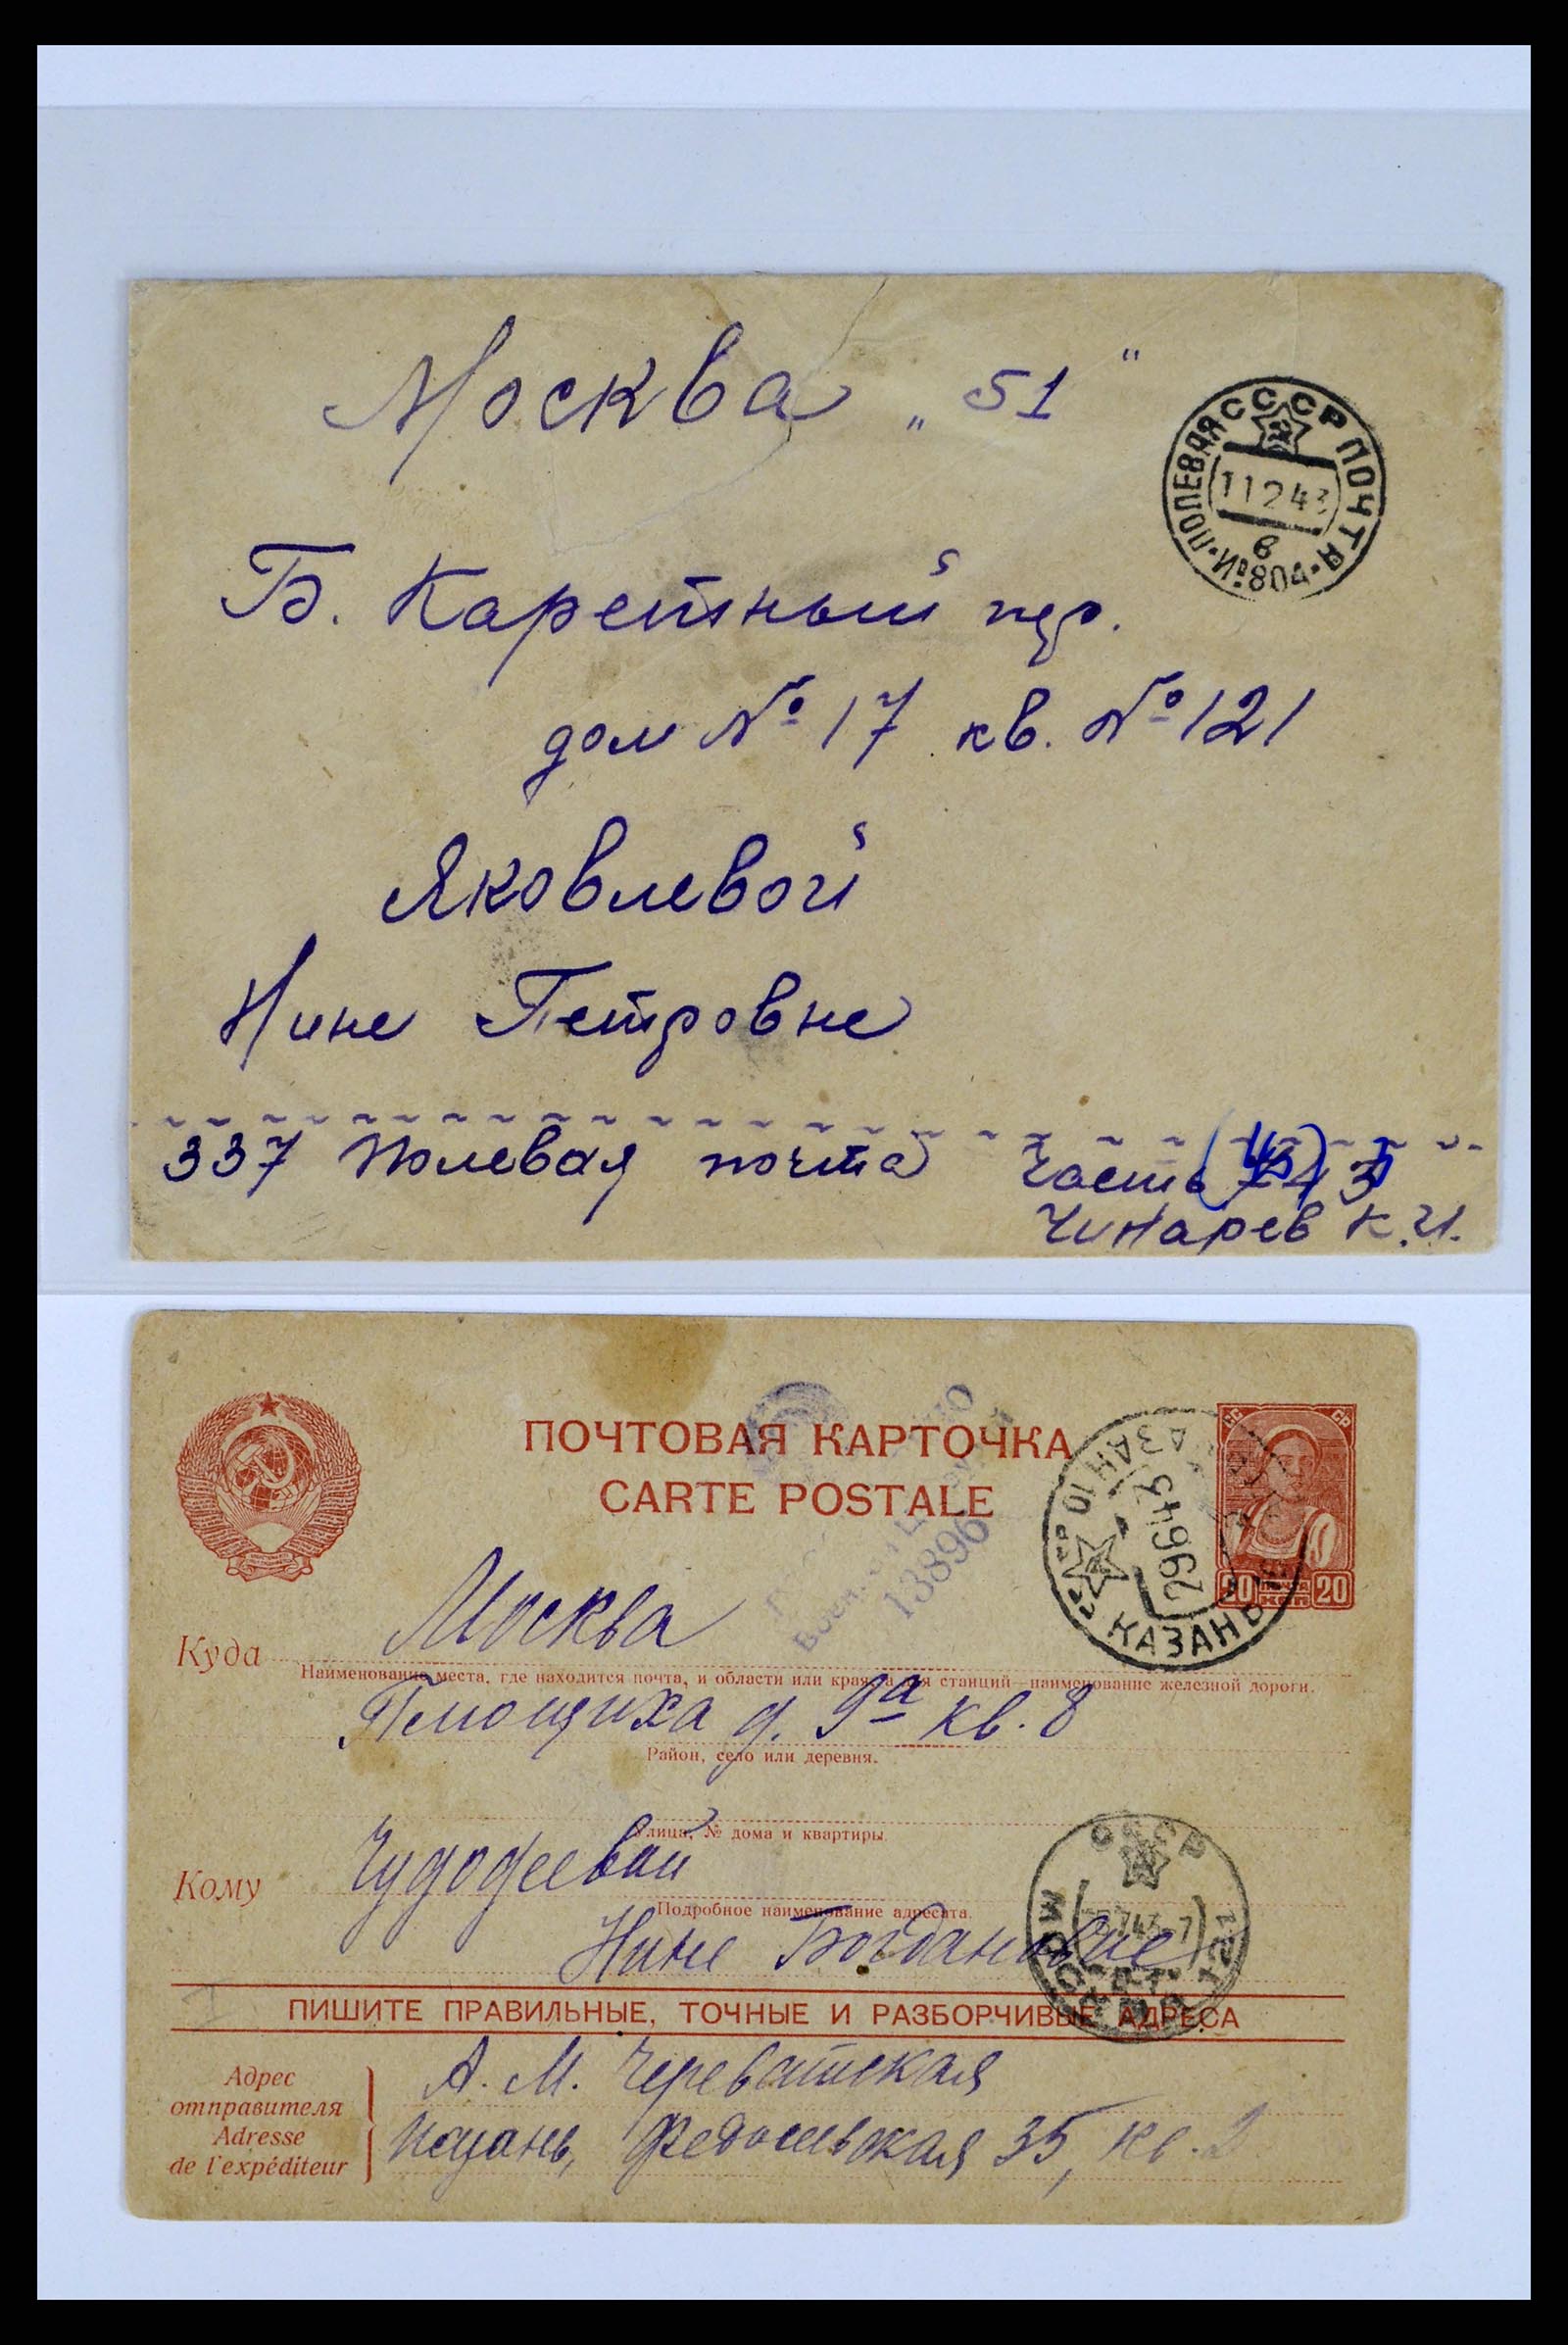 Москва „51"
СССР ПОЧТА
ПОЛЕВАЯ
11 2 43
в
№ 804
Б. Каретный пер.
дом № 17 кв. № 121
Яковлевой
Нине Петровне
337 Полевая почта часть
Чинарев К.И.
ПОЧТОВАЯ КАРТОЧКА
CARTE POSTALE
13896
КАЗАНЬ
26 6 43
КАЗАНЬ
20 ПОЧТА КОП 20
Куда Москва
Наименование места, где находится почта, и области или края, а для станций—наименование железной дороги.
Плющиха д. 9а кв. 8
Район, село или деревня.
Улица, № дома и квартиры.
Кому Чудодеевой
Подробное наименование адресата.
Нине Богдановне
СССР
МОСКВА
ПИШИТЕ ПРАВИЛЬНЫЕ, ТОЧНЫЕ И РАЗБОРЧИВЫЕ АДРЕСА
Адрес
отправителя
Adresse
de l'expéditeur
А. М. Череватская
Казань, Федосеевская 35, кв. 2